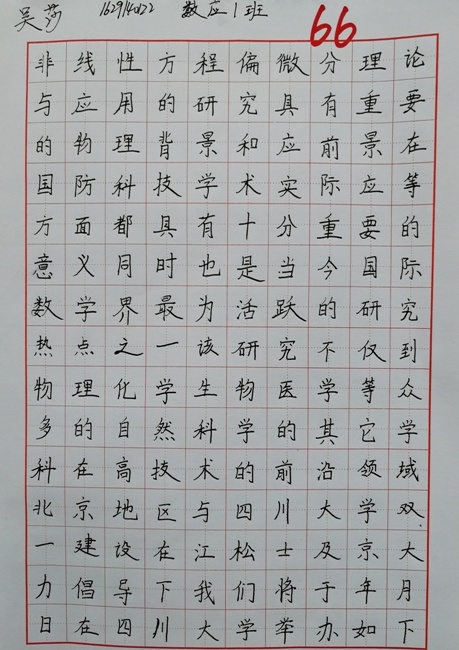 吴莎 数应1班 66
非线性方程偏微分理论
与应用的研究具有重要
的物理背景和应前景在
国防科技学术实际应等
方面都具有十分重要的
意义同时也是当今国际
数学界最为活跃的研究
热点之一该研究不仅到
物理化学生物医学等众
多的自然科学的其它学
科在高技术的前沿领域
北京地区与四川大学双
一建设在江松士及京大
力倡导下我们将于年月
日在四川大学举办如下